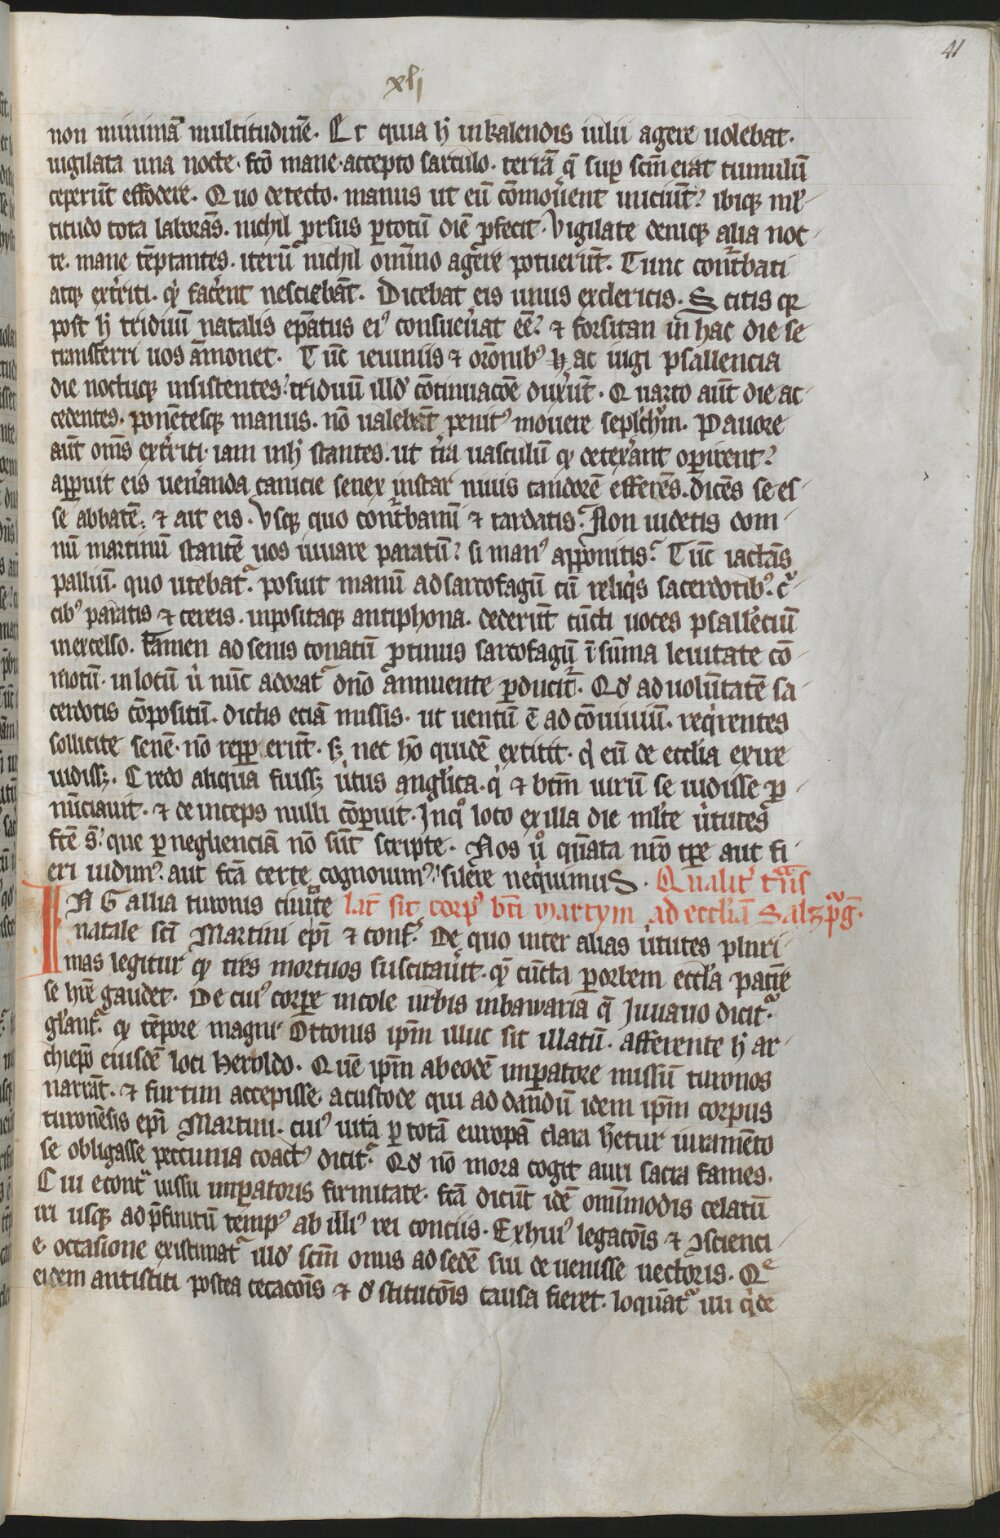 41
xlj
non minimā multitudinē. Et quia h̄ in kalendis iulii agere uolebat.
uigilata una nocte. fc̄o mane. accepto sarculo. terrā q̄ sup scm̄ erat tumulū
ceperūt effodere. Quo detecto. manus ut eū cōmou̅ent iniciūt; ibiq; ml̄-
titudo tota laborās. nichil prsus p totū diē pfecit. Vigilate deniq; alia noc-
te. mane tēptantes. iterū nichil omīno agere potuerūt. Tunc cont̄bati
atq; ext̄riti. qͥ fac̄ent nesciebāt. Dicebat eis unus ex clericis. Scitis qr
post h̄ triduū natalis ep̄atus eiꝰ consueu̅at eē; ⁊ forsitan in hac die se
transferri uos āmonet. Tūc ieiuniis ⁊ orōnibꝰ h ac iugi psallencia
die noctuq; insistentes; triduū illd̄ cōtinuacōe duxer̄t. Quarto aūt die ac-
cedentes. ponētesq; manus. nō ualebāt penitꝰ mouere seplc̄hrū. Pauore
aūt oms̄ ext̄riti. iam inh̄ stantes. ut t̄ra uasculū qd̄ detex̄ant opirent;
apparuit eis uen̄anda canicie senex instar niuis candorē efferēs. dicēs se es-
se abbatē. ⁊ ait eis. Vsq; quo cont̄bamī ⁊ tardatis; Non uidetis dom-
nū martinū stantē uos iuuare paratū; si manꝰ apponitis. Tūc iactās
palliū. quo utebat᷑. posuit manū ad sarcofagū cū reliqͥs sacerdotibꝰ. cͬu-
cibꝰ paratis ⁊ cereis. inpositaq; antiphona. dederūt cūcti uoces psallētiū
in excelso. Tamen ad senis conatū ptinus sarcofagū ī sūma leuitate cō-
motū. in locū ū nūc adorat᷑ dn̄o annuente pducit᷑. Qd̄ ad uolūtatē sa-
cerdotis cōpositū. dictis eciā missis. ut uentū ē ad cōuiuiū. reqͥrentes
sollicite senē. nō repp̱erūt. s; nec hō quidē extitit. qͥ eū de eccl̄ia exire
uidiss;. Credo aliqua fuiss; u̅tus anglica. qͥ ⁊ btm̄ uirū se uidisse p-
nūciauit. ⁊ deinceps nulli cōparuit. In qͦ loco ex illa die ml̄te u̅tutes
fcē s̄; que p negligenciā nō sūt scripte. Nos ū qͣ in̄ata nr̄o tp̄re aut fi-
eri uidimꝰ. aut fcā certe cognouimꝰ; silere neqͥuimuS. Qualit᷑ tͣns
IN Gallia turonis ciuitͣte lat̄ sit corpꝰ bt̄i martym ad ecclīam Salzpͦg̅.
natale scī Martini epī ⁊ confͥ. De quo inter alias u̅tutes pluri-
mas legitur qd̄ tres mortuos suscitauit. qd̄ cūcta p orbem eccl̄a pat̄ne
se hr̄e gaudet. De cuiꝰ corpe incole urbis in bawaria q̄ Juuauo dicit᷑.
gl̄ant᷑. qd̄ tēpore magni Ottonis ipm̄ illuc sit illatū. afferente h̄ ar-
chiepō eiusdē loci Heroldo. Quē ipm̄ ab eodē impatore missū turonos
narrāt. ⁊ furtim accepisse. a custode qui ad dandū idem ipm̄ corpus
turonēsis epī Martini. cuiꝰ uita p totā europā clara h̄etur iuramēto
se obligasse peccunia coactꝰ dicit᷑. Qd̄ nō mora cogit auri sacra fames.
Cui econtͣ iussu impatoris firmitate. fcā dicūt idē omīmodis celatū
iri usq; ad p̄finitū tempꝰ ab illiꝰ rei consciis. Ex huiꝰ legacōis ⁊ ꝯscienci-
e. occasione existimat᷑ illd̄ scm̄ onus ad sedē sui deuenisse uectoris. Qͤ
eidem antistiti postea cecacōis ⁊ dͤstitutōis causa fieret. loquāt᷑ illi qͥ de